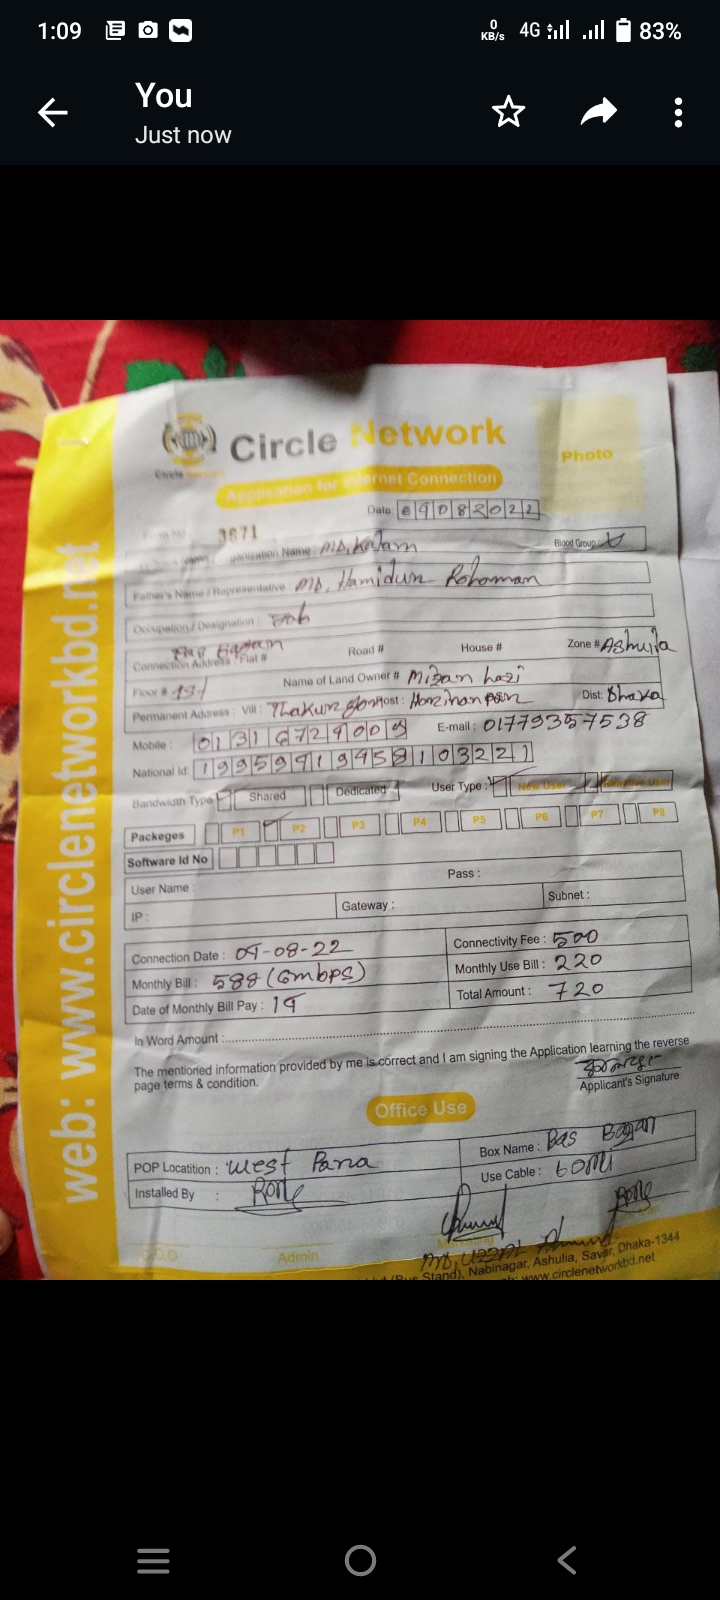 1:09
0 KB/s 4G 83%
You
Just now
Circle Network
Photo
Application for Internet Connection
Date 09082022
3671
Name: MD. Kalam Blood Group:
Father's Name / Representative: MD. Hamidur Rohoman
Occupation / Designation: Job
Connection Address: Flat # Road # House # Zone # Ashulia
Floor # Name of Land Owner # Mizan hazi
Permanent Address: Vill: Post: Dist: Dhaka
Mobile: E-mail: 01779357538
National Id:
Bandwidth Type Shared Dedicated User Type: New User
Packeges P1 P2 P3 P4 P5 P6 P7 P8
Software Id No
User Name: Pass:
IP: Gateway: Subnet:
Connection Date: 09-08-22 Connectivity Fee: 500
Monthly Bill: 588 (6mbps) Monthly Use Bill: 220
Date of Monthly Bill Pay: 19 Total Amount: 720
In Word Amount:
The mentioned information provided by me is correct and I am signing the Application learning the reverse
page terms & condition.
Applicant's Signature
Office Use
POP Locatition: West Para Box Name: Bas Bagan
Installed By: Rone Use Cable: 60Mi
Rone
Admin Marketing
Stand), Nabinagar, Ashulia, Savar, Dhaka-1344
www.circlenetworkbd.net
web: www.circlenetworkbd.net